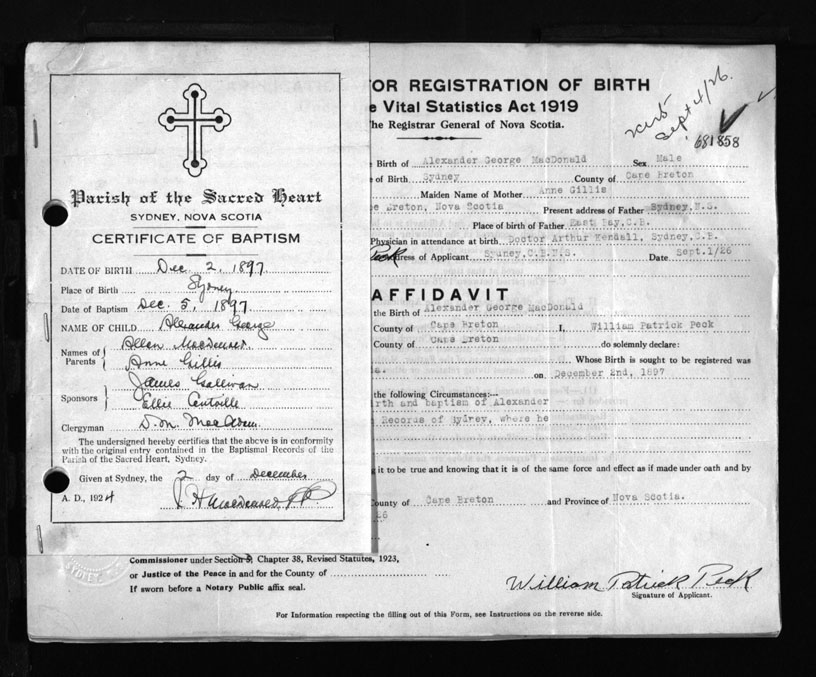 Parish of the Sacred Heart
SYDNEY, NOVA SCOTIA
CERTIFICATE OF BAPTISM
DATE OF BIRTH Dec. 2, 1897
Place of Birth Sydney
Date of Baptism Dec. 5, 1897
NAME OF CHILD Alexander George
Names of Parents { Allan MacDonald
Anne Gillis
Sponsors { James Gallivan
Ellie
Clergyman D. M. MacAdam
The undersigned hereby certifies that the above is in conformity
with the original entry contained in the Baptismal Records of the
Parish of the Sacred Heart, Sydney.
Given at Sydney, the 2 day of December
A. D., 1924
OR REGISTRATION OF BIRTH
e Vital Statistics Act 1919
he Registrar General of Nova Scotia.
Sept 4/26.
681858
e Birth of Alexander George MacDonald Sex Male
e of Birth Sydney County of Cape Breton
Maiden Name of Mother Anne Gillis
e Breton, Nova Scotia Present address of Father Sydney, N.S.
Place of birth of Father East Bay, C.B.
Physician in attendance at birth Doctor Arthur Kendall, Sydney, C.B.
Peck ddress of Applicant Sydney, C.B.N.S. Date Sept. 1/26
AFFIDAVIT
the Birth of Alexander George MacDonald
County of Cape Breton I, William Patrick Peck
County of Cape Breton do solemnly declare:
Whose Birth is sought to be registered was
on December 2nd, 1897
the following Circumstances:—
irth and baptism of Alexander
Records of Sydney, where he
it to be true and knowing that it is of the same force and effect as if made under oath and by
ounty of Cape Breton and Province of Nova Scotia.
26
Commissioner under Section 5, Chapter 38, Revised Statutes, 1923,
or Justice of the Peace in and for the County of
If sworn before a Notary Public affix seal.
SYDNEY
William Patrick Peck
Signature of Applicant.
For Information respecting the filling out of this Form, see Instructions on the reverse side.